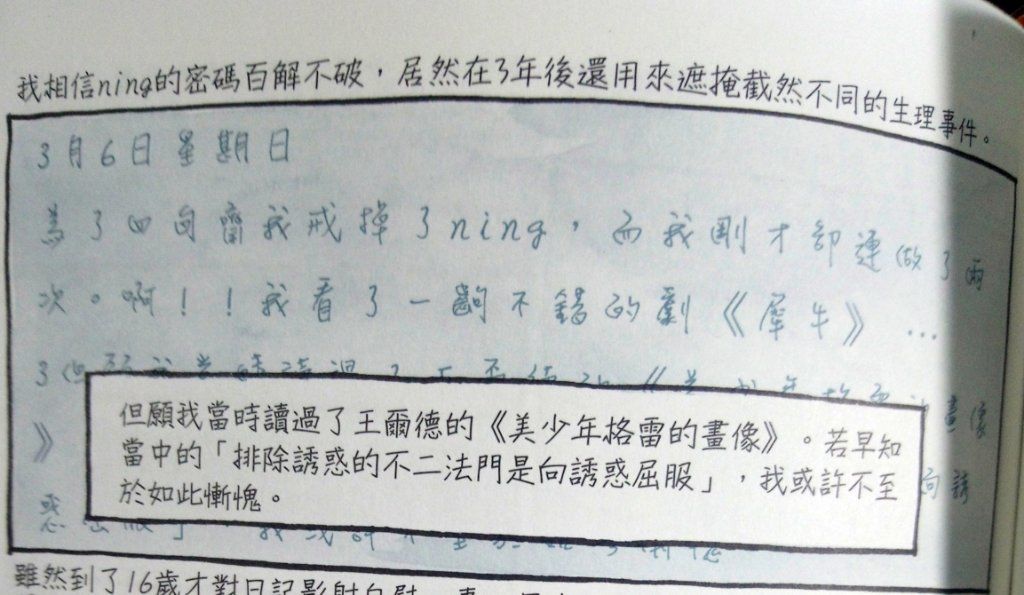 我相信ning的密碼百解不破，居然在3年後還用來遮掩截然不同的生理事件。
3月6日星期日
為了四旬齋我戒掉了ning，而我剛才卻連做了兩
次。啊！！我看了一齣不錯的劇《犀牛》…
但願我當時讀過了王爾德的《美少年格雷的畫像》。若早知
當中的「排除誘惑的不二法門是向誘惑屈服」，我或許不至
於如此慚愧。
畫像
》
向誘
惑
雖然到了16歲才對日記影射自慰